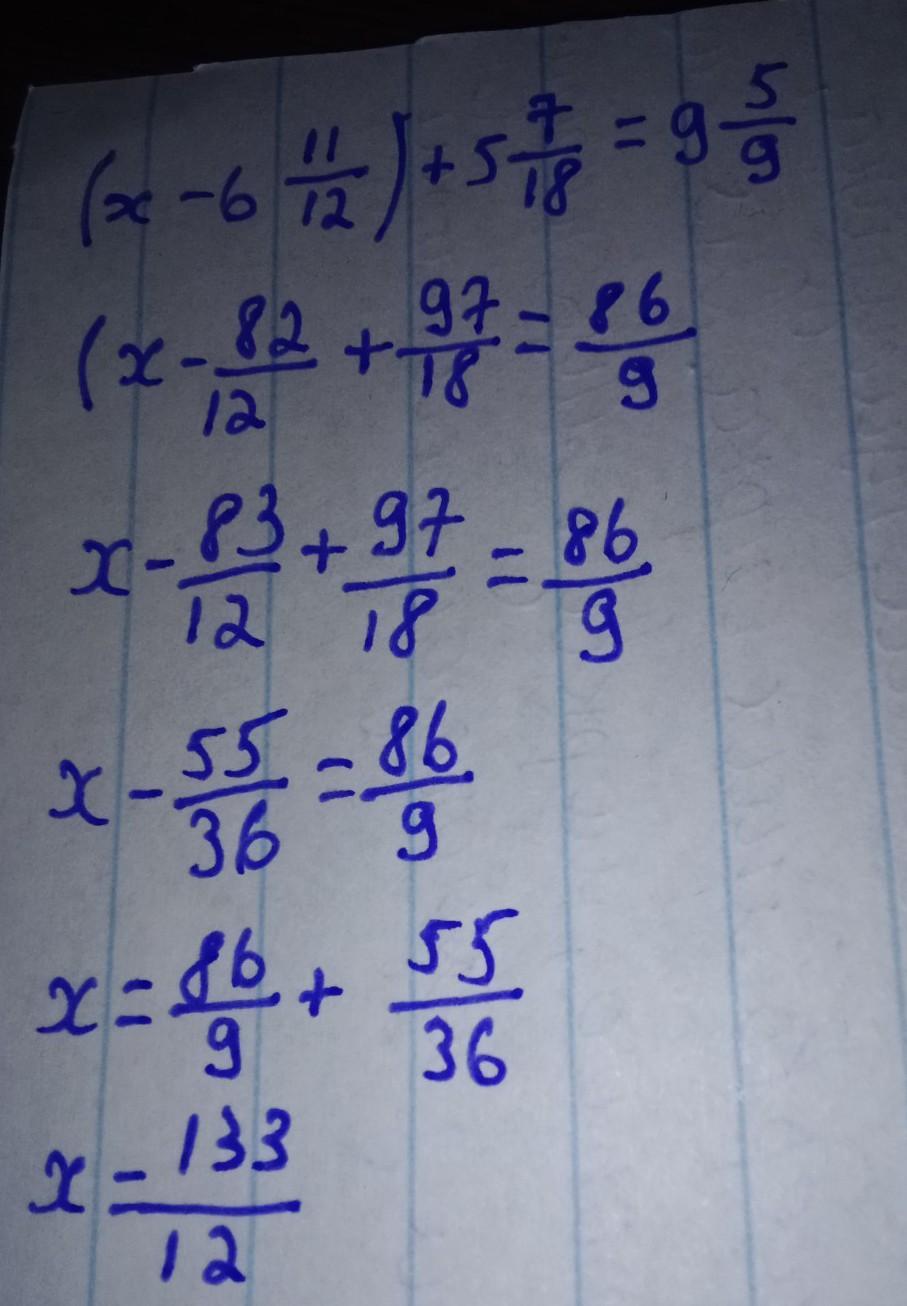 (x - 6 11/12) + 5 7/18 = 9 5/9
(x - 82/12 + 97/18 = 86/9
x - 83/12 + 97/18 = 86/9
x - 55/36 = 86/9
x = 86/9 + 55/36
x = 133/12